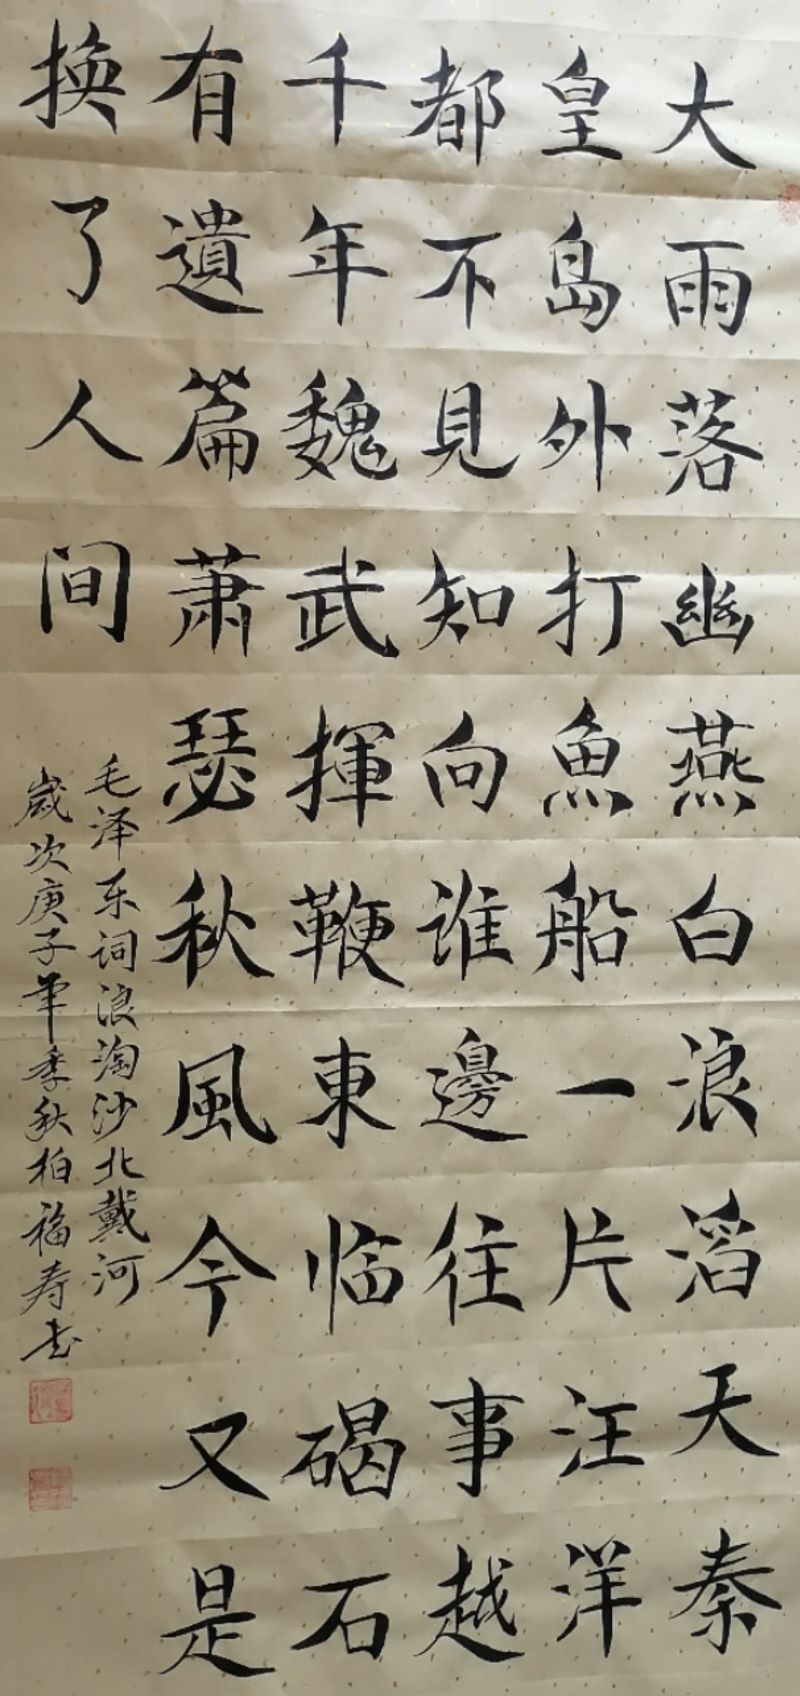 大雨落幽燕白浪滔天秦
皇島外打魚船一片汪洋
都不見知向谁邊往事越
千年魏武揮鞭東临碣石
有遺篇萧瑟秋風今又是
换了人间
毛泽东词浪淘沙北戴河
歲次庚子年季秋柏福寿书